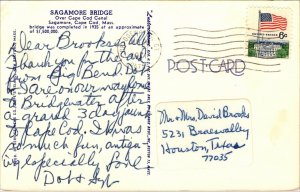 SAGAMORE BRIDGE
Over Cape Cod Canal
Sagamore, Cape Cod, Mass.
bridge was completed in 1935 at an approximate
of $1,500,000.
Dear Brookses all
Thank you for the card
from Big Bend. Dot
I are on our way home
Bridgewater after
a grand 3 day journey
to Cape Cod. It was
so much fun, antiqu-
ing especially. Love
Dot &
POST CARD
6c
Mr & Mrs. David Brooks
5231 Braesvalley
Houston, Texas
77035